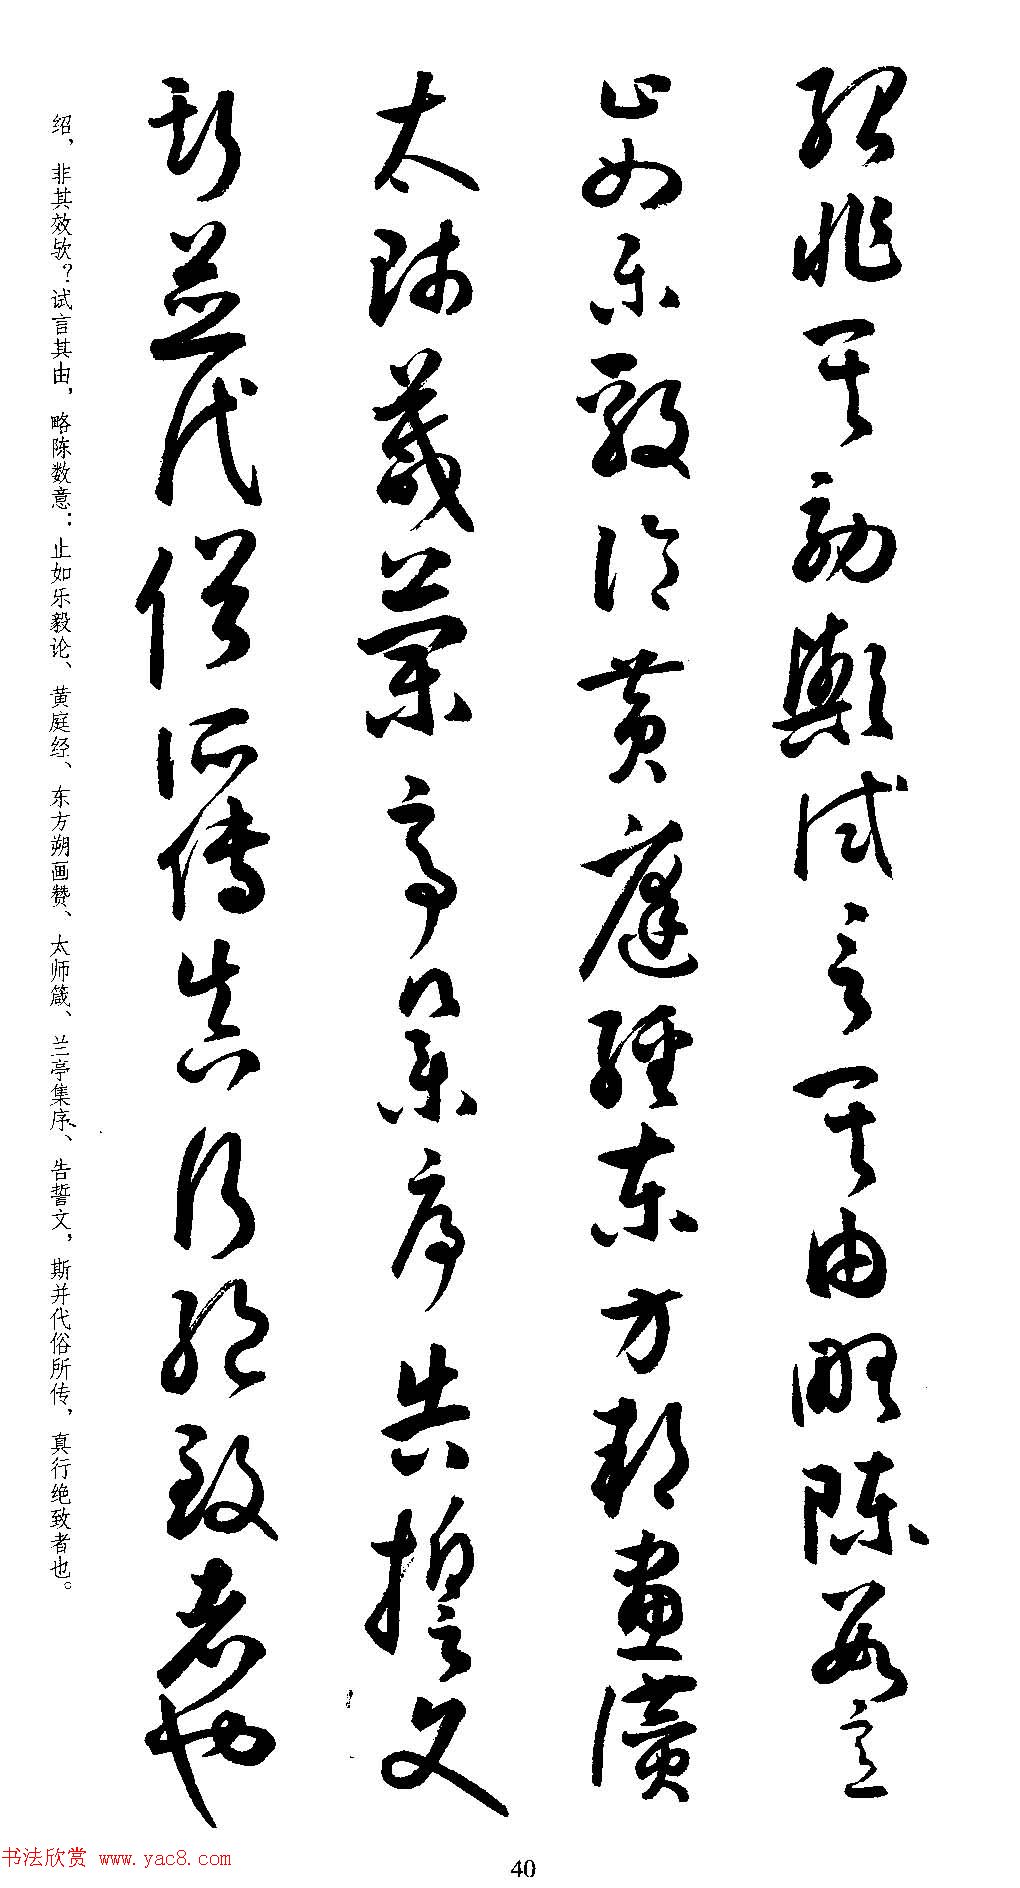 紹非其効歟試言其由略陳數意
止如樂毅論黃庭經東方朔畫讚
太師箴蘭亭集序告誓文
斯並代俗所傳真行絕致者也
绍，非其效欤？试言其由，略陈数意：止如乐毅论、黄庭经、东方朔画赞、太师箴、兰亭集序、告誓文，斯并代俗所传，真行绝致者也。
书法欣赏 www.yac8.com
40